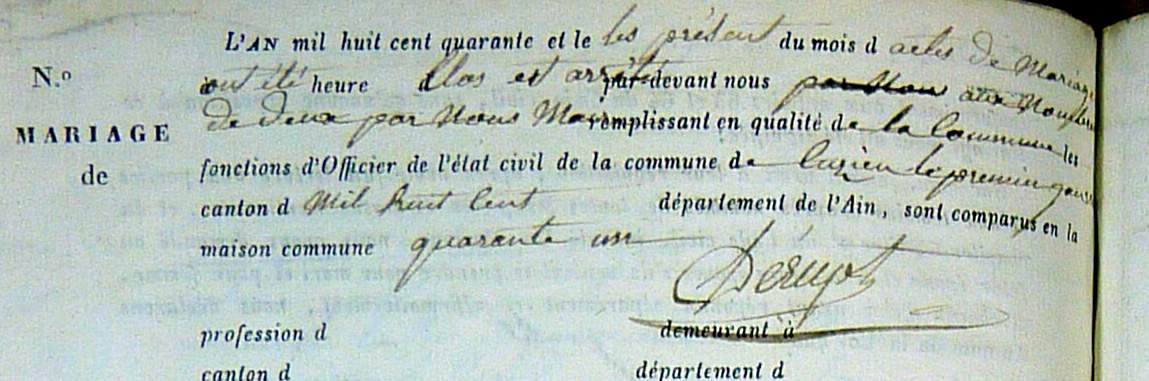 L'AN mil huit cent quarante et le les présent du mois d actes de Mariage
N.º ont été heure Clos et arrêté par-devant nous par Nous aux Nombre
MARIAGE de deux par Nous Maire remplissant en qualité de la Commune les
de fonctions d'Officier de l'état civil de la commune de le premier
canton d mil huit Cent département de l'Ain, sont comparus en la
maison commune quarante un
profession d demeurant à
canton d département d